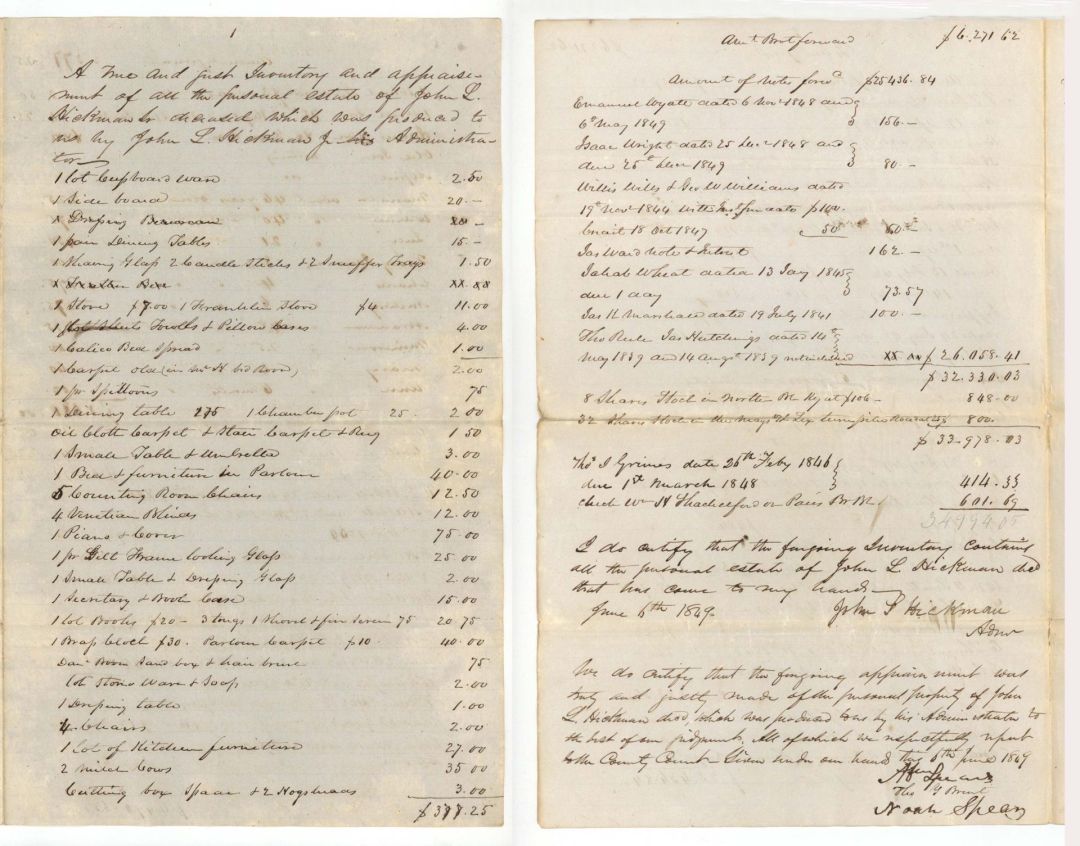 1
A True and just Inventory and appraise-
ment of all the personal estate of John L.
Hickman deceased which was produced to
us by John L. Hickman Jr Administra-
tor
1 lot Cupboard ware 2.50
1 Side board 20.-
x Dressing Beaureau 20 -
1 pair Dining Tables 15.-
1 Shaving Glass 2 Candle Sticks & 2 Snuffer Trays 1.50
x Feather Bed xx.xx
1 Stove $7.00 1 Franklin Stove $4 11.00
1 lot Sheets Towells & Pillow Cases 4.00
1 Calico Bed Spread 1.00
1 Carpet old (in Mr H bed Room) 2.00
1 pr Spittoons 75
1 Dining table 175 1 Chamber pot 25 - 2 00
Oil Cloth Carpet & Stair Carpet & Rug 1 50
1 Small Table & Umbrella 3.00
1 Bed & furniture in Parlour 40.00
5 Counting Room Chairs 12.50
4 Venetian Blinds 12.00
1 Piano & Cover 75.00
1 pr Gilt Frame looking Glass 25.00
1 Small Table & Dressing Glass 2.00
1 Secretary & Book Case 15.00
1 lot Books $20 - 3 tongs 1 Shovel & fire Screen 75 20 75
1 Brass Clock $30. Parlour Carpet $10 - 40.00
Room Sand box & hair brush 75
lot Stone Ware & Soap 2.00
1 Dressing table 1.00
4 Chairs 2.00
1 Lot of Kitchen furniture 27.00
2 Milch Cows 35 00
Cutting box & 2 Hogsheads 3.00
$377.25
Amt Brot forward $6.271 62
Amount of Note forwd $25436.84
Emanuel Wyatt dated 6 Novr 1848 due
6th May 1849 156.-
Isaac Wright dated 25 Decr 1848 and
due 25th Decr 1849 80 -
Willis Wills & Geo W Williams dated
19th Novr 1844 with Int frm date $100.
Credit 18 Oct 1847 50 60
Jas Ward Note & Intrest 162.-
Wheat dated 13 Jany 1845
due 1 day 73.57
Jas H Marshall dated 19 July 1841 100.-
Tho Jas Hutchings dated 14th
May 1839 and 14 Augst 1839 xx xx $26.058.41
$32.330.03
8 Shares Stock in Northn Bk Ky at $106- 848-00
32 Shares Stock in the & Lex turnpike 800.
$33-978.03
Thos J Grimes date 26th Feby 1846
due 1st March 1848 414.33
check Wm H Shackelford on Paris Br Bk 601.69
34994.05
I do certify that the forgoing Inventory contains
all the personal estate of John L. Hickman decd
that has come to my hands
June 6th 1849- John L Hickman
Admr
We do certify that the forgoing appraisement was
truly and justly made of the personal property of John
L. Hickman decd, which was produced to us by his Administrator to
the best of our judgment. All of which we respectfully report
to the County Court. Given under our hands this 6th June 1849
Spears
Thos Y Brent
Noah Spears